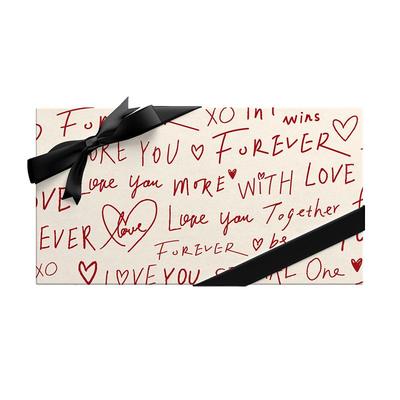 FOREVER XO wins
ADORE YOU FOREVER
LOVE Love you MORE WiTH LOVE
FOREVER love Love you Together
FOREVER be
XO LOVE YOU One